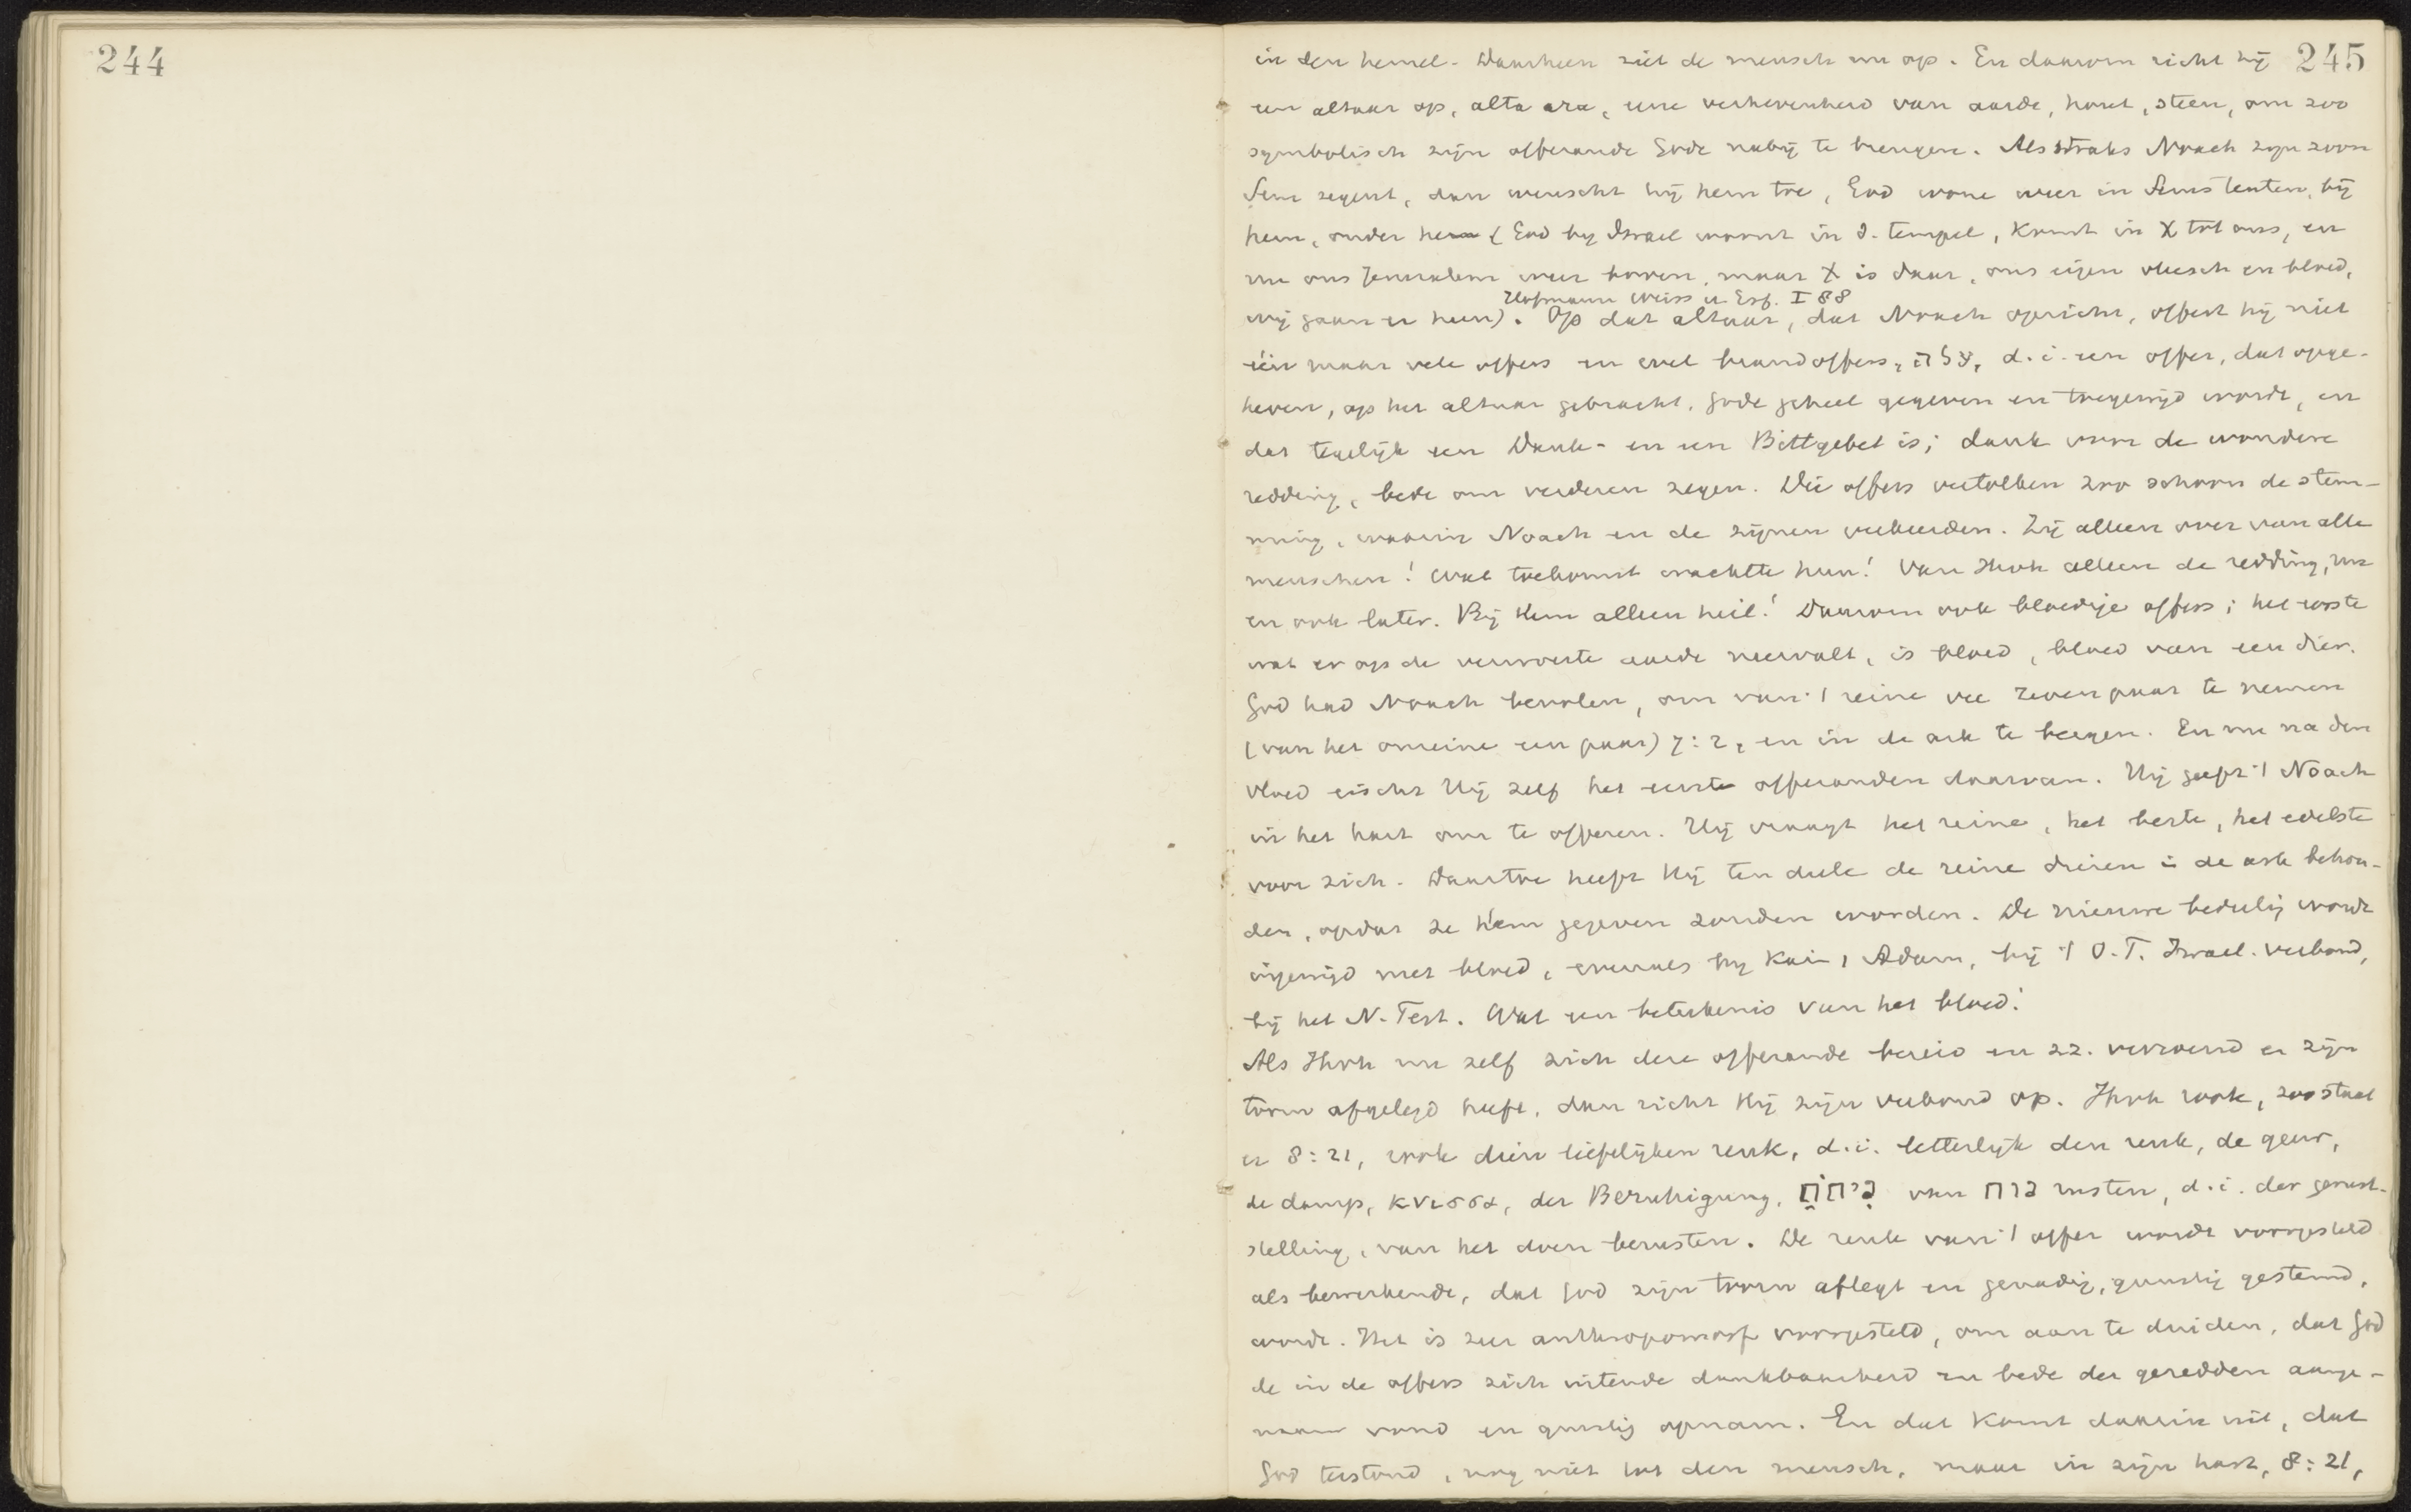 244
245
in den hemel. Daarheen ziet de mensch nu op. En daarom richt hij
een altaar op, alta ara, eene verhevenheid van aarde, hout, steen, om zoo
symbolisch zijn offerande Gode nabij te brengen. Als straks Noach zijn zoon
Sem zegent, dan wenscht hij hem toe, God wone weer in Sems tenten, bij
hem, onder hem (God bij Israel woont in d. tempel, komt in X tot ons, en
nu ons Jeruzalem weer boven, maar X is daar, ons eigen vleesch en bloed,
Hofmann Weiss u Erf. I 88
wij gaan er heen). Op dat altaar, dat Noach opricht, offert hij niet
één maar vele offers en wel brandoffers, עלה, d.i. een offer, dat opge-
heven, op het altaar gebracht, Gode geheel gegeven en toegewijd wordt, en
dat tegelijk een Dank- en een Bittgebet is; dank voor de wondere
redding, bede om verderen zegen. Die offers vertolken zoo schoon de stem-
ming, waarin Noach en de zijnen verkeerden. Zij alleen over van alle
menschen! Wat toekomst wachtte hun! Van Jhvh alleen de redding, nu
en ook later. Bij Hem alleen heil! Daarom ook bloedige offers; het eerste
wat er op de verwoeste aarde neervalt, is bloed, bloed van een dier.
God had Noach bevolen, om van 't reine vee zeven paar te nemen
(van het onreine een paar) 7:2, en in de ark te bergen. En nu na den
vloed eischt Hij zelf het eerste offeranden daarvan. Hij geeft 't Noach
in het hart om te offeren. Hij vraagt het reine, het beste, het edelste
voor zich. Daartoe heeft Hij ten deele de reine dieren in de ark behou-
den, opdat ze Hem gegeven zouden worden. De nieuwe bedeeling wordt
ingewijd met bloed, evenals bij Kain, Adam, bij 't O.T. Israel. verbond,
bij het N. Test. Wat een beteekenis van het bloed!
Als Jhvh nu zelf zich deze offerande bereid en z.z. verzoend en zijn
toorn afgelegd heeft, dan richt Hij zijn verbond op. Jhvh rook, zoo staat
er 8:21, rook dien liefelijken reuk, d.i. letterlijk den reuk, de geur,
de damp, κνισσα, der Beruhigung, ניחח van נוח rusten, d.i. der gerust-
stelling, van het doen berusten. De reuk van 't offer wordt voorgesteld
als bewerkende, dat God zijn toorn aflegt en genadig, gunstig gestemd,
wordt. Het is zeer anthropomorf voorgesteld, om aan te duiden, dat God
de in de offers zich uitende dankbaarheid en bede der geredden aange-
naam vond en gunstig opnam. En dat komt daarin uit, dat
God terstond, nog niet tot den mensch, maar in zijn hart, 8:21,